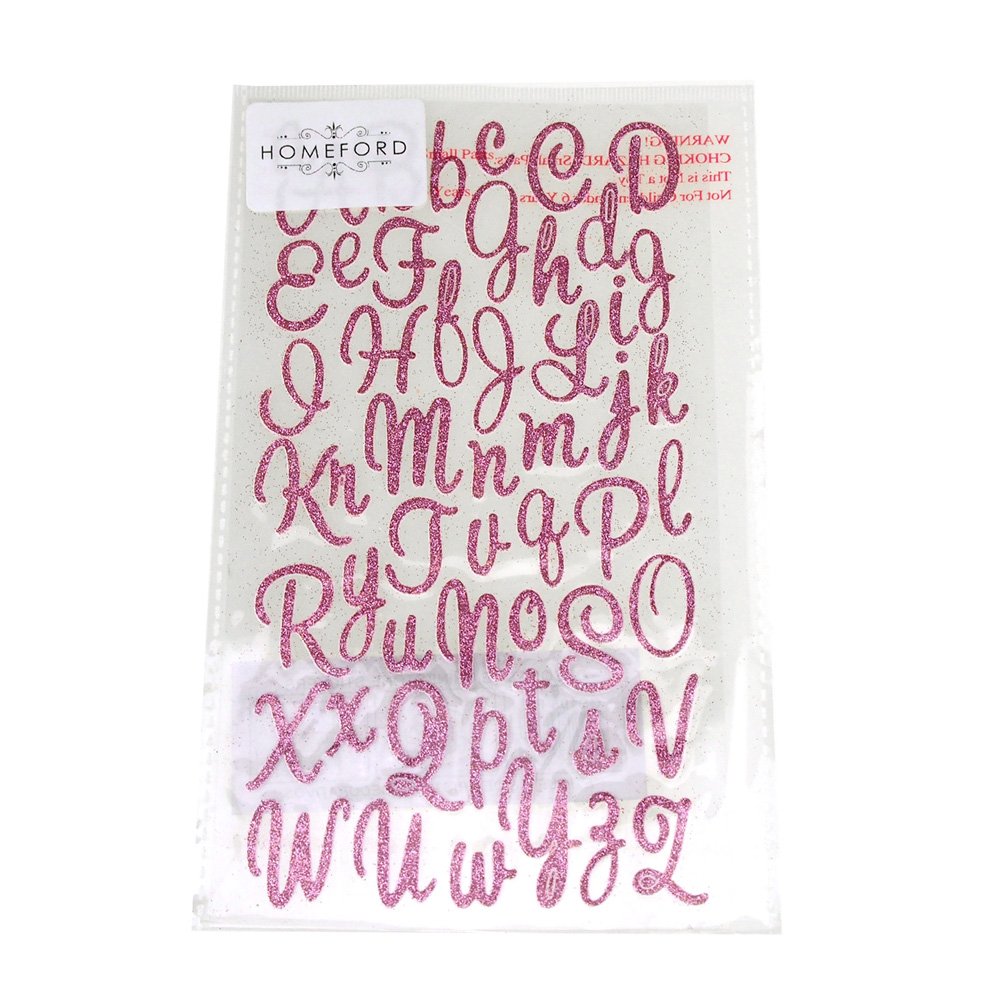 HOMEFORD
WARNING!
CHOKING HAZARD-Small Parts
This is Not a Toy
Not For Children Under 6 Years
b c C D
E e F G h d g
I H f J L i j k
K n M n m l
R y T v q P
u N o S O
X x Q p t s V
W U w Y z Z